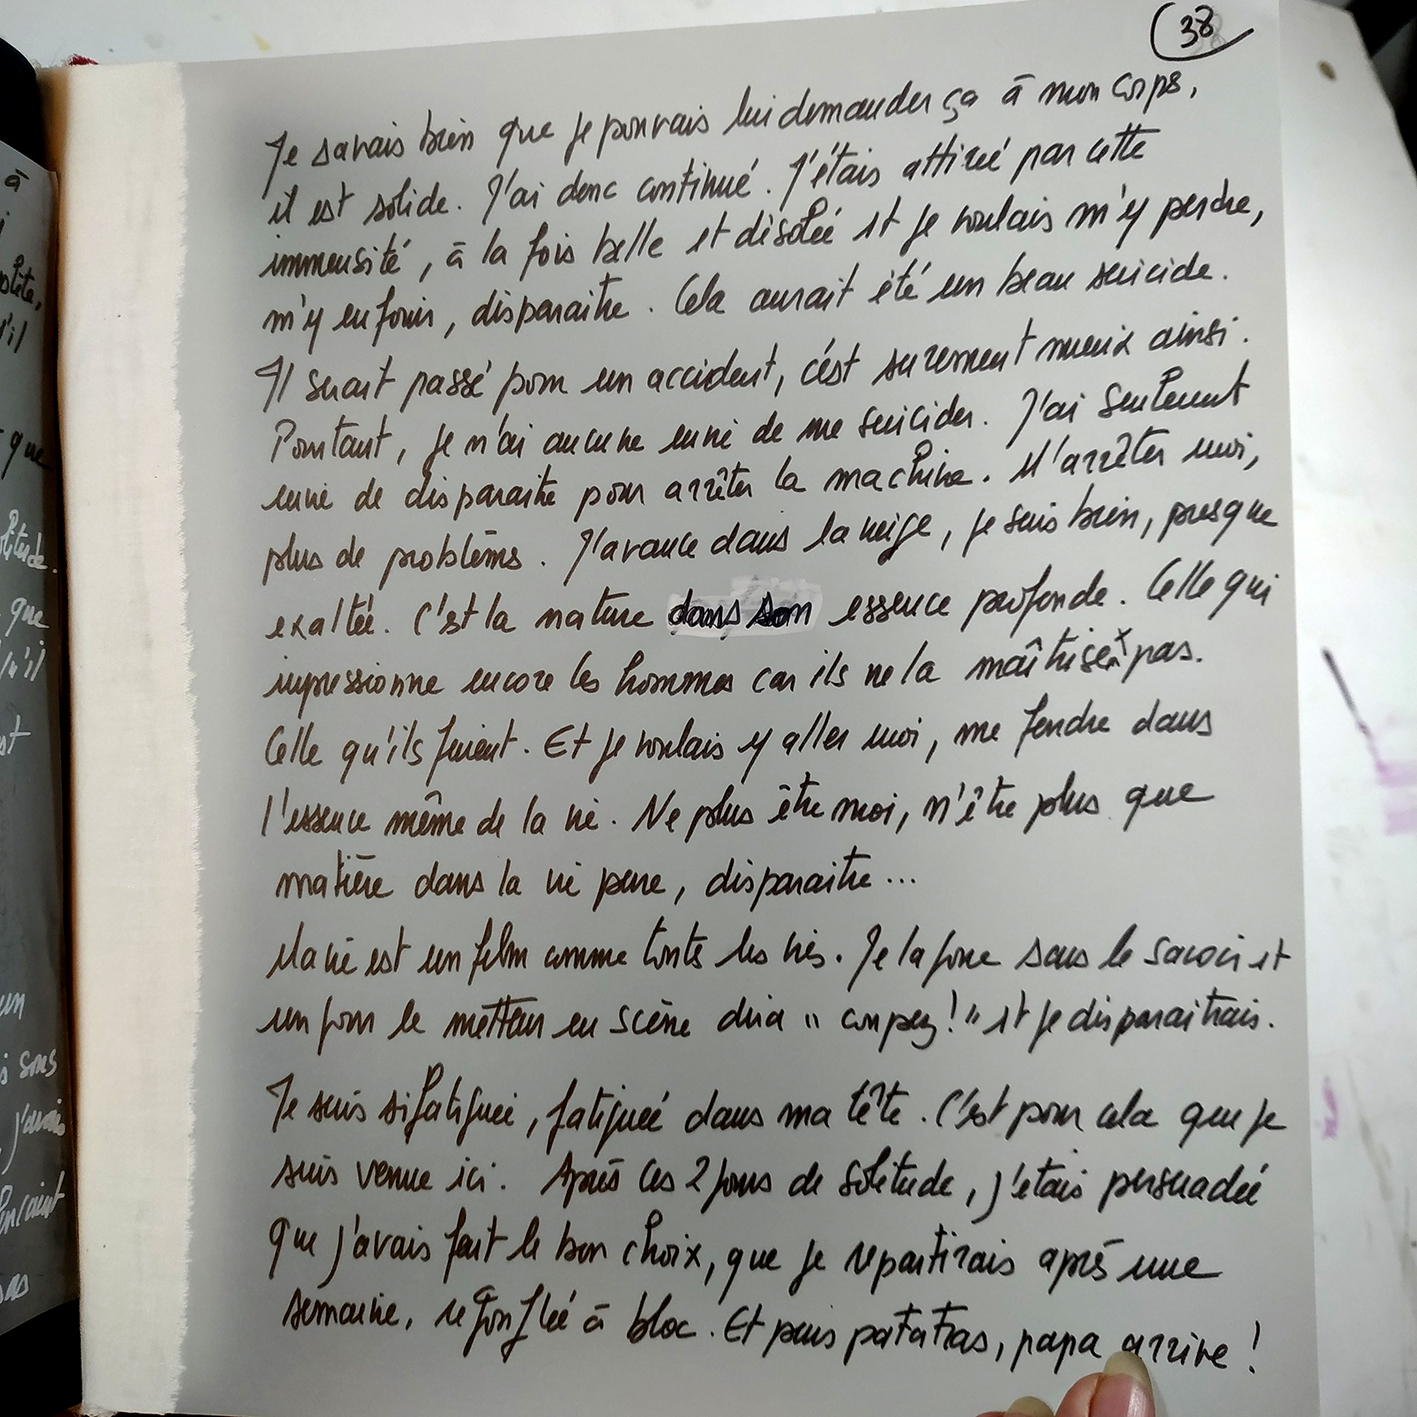 38
Je savais bien que je pouvais lui demander ça à mon corps,
il est solide. J'ai donc continué. J'étais attirée par cette
immensité, à la fois belle et désolée et je voulais m'y perdre,
m'y enfouir, disparaitre. Cela aurait été un beau suicide.
Il serait passé pour un accident, c'est surement mieux ainsi.
Pourtant, je n'ai aucune envie de me suicider. J'ai seulement
envie de disparaitre pour arrêter la machine. M'arrêter moi,
plus de problèmes. J'avance dans la neige, je suis bien, presque
exaltée. C'est la nature dans son essence profonde. Celle qui
impressionne encore les hommes car ils ne la maîtrisent pas.
Celle qu'ils fuient. Et je voulais y aller moi, me fondre dans
l'essence même de la vie. Ne plus être moi, n'être plus que
matière dans la vie pure, disparaitre...
Ma vie est un film comme toutes les vies. Je la joue sans le savoir et
un jour le metteur en scène dira " coupez! " et je disparaitrais.
Je suis si fatiguée, fatiguée dans ma tête. C'est pour cela que je
suis venue ici. Après ces 2 jours de solitude, j'etais persuadée
que j'avais fait le bon choix, que je repartirais après une
semaine, regonflée à bloc. Et puis patatras, papa arrive !
à
que
que
un
sous
j'avais